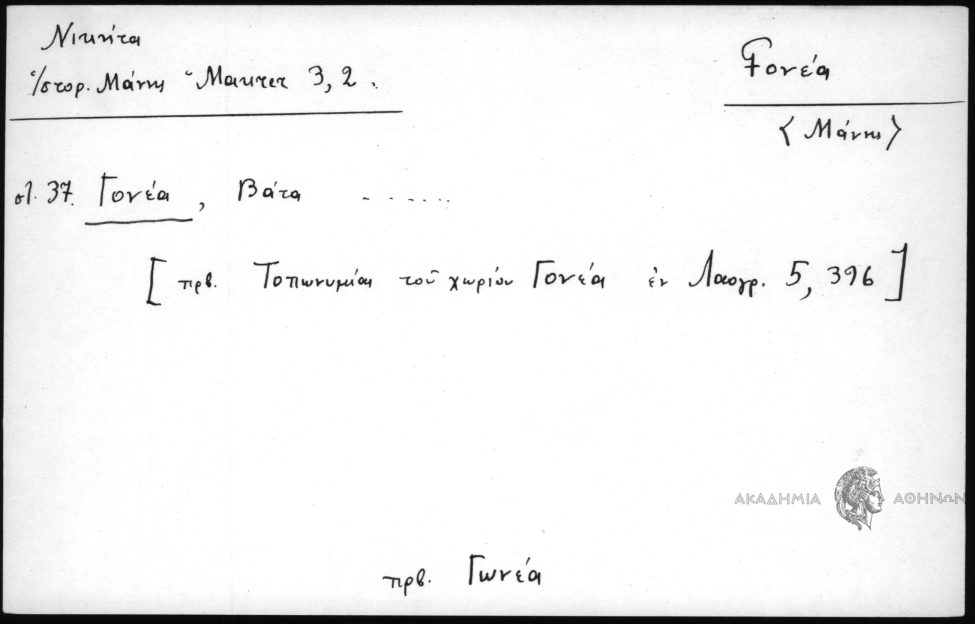 Νικήτα
Γονέα
Ἱστορ. Μάνης Μαλτετ 3, 2.
< Μάνης >
στ. 37. Γονέα, Βάτα ......
[ πρβ. Τοπωνυμίαι τοῦ χωρίου Γονέα ἐν Λαογρ. 5, 396 ]
ΑΚΑΔΗΜΙΑ ΑΘΗΝΩΝ
πρβ. Γωνέα